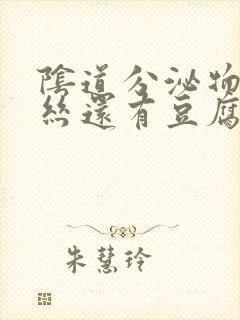 陰道分泌物
絲還有豆腐
朱慧玲